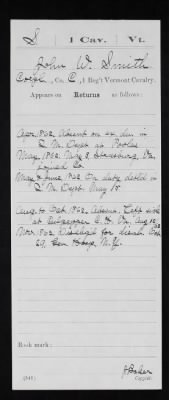 S | 1 Cav. | Vt.
John W. Smith
Corpl., Co. C, 1 Reg't Vermont Cavalry.
Appears on Returns as follows:
Apr. 1862. Absent on ex. du. in
Q. M. Dept. at
May 1862. May 2, Va.
joined Co.
May & June 1862 On duty detld in
Q. M. Dept. May 15.
Aug. to Oct. 1862. Absent. Left sick
at Culpepper C. H. Va. Aug.
Nov. 1862 Dischgd for disab. Oct.
29, N.Y.
Book mark:
(546)
Baker
Copyist.